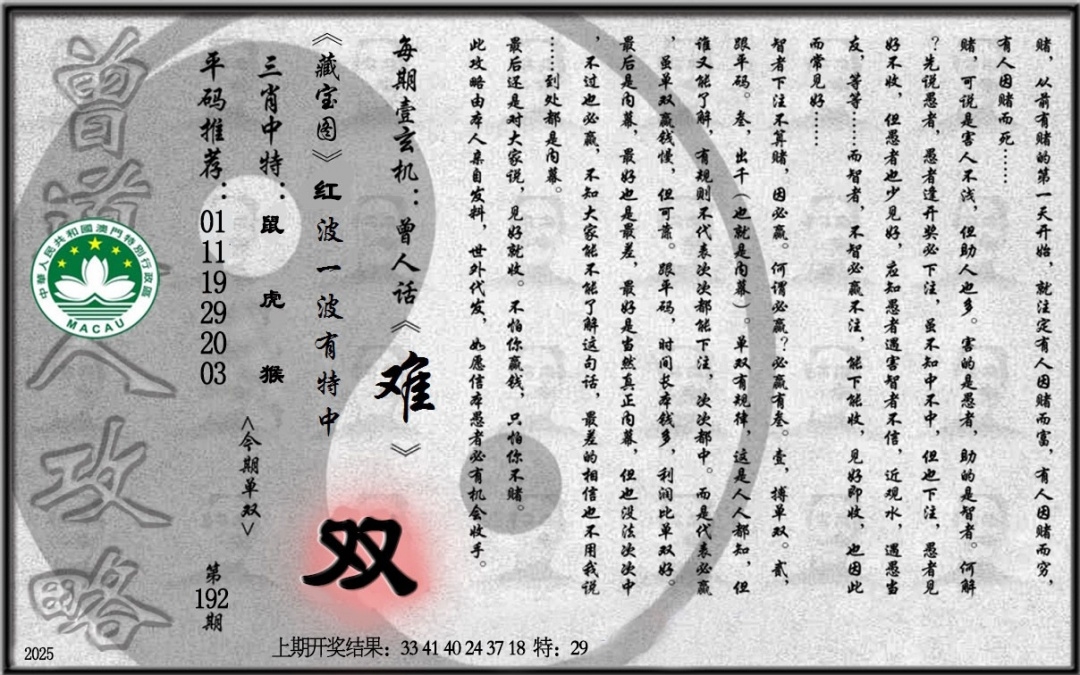 赌，从前有赌的第一天开始，就注定有人因赌而富，有人因赌而穷，
有人因赌而死……
赌，可说是害人不浅，但助人也多。害的是愚者，助的是智者。何解
？先说愚者，愚者逢开奖必下注，虽不知中不中，但也下注，愚者见
好不收，但愚者也少见好，应知愚者遇害智者不信，近观水，遇愚当
友，等等……而智者，不智必赢不注，能下能收，见好即收，也因此
而常见好……
智者下注不算赌，因必赢。何谓必赢？必赢有叁。壹，搏单双。贰，
跟平码。叁，出千（也就是内幕）。单双有规律，这是人人都知，但
谁又能了解，有规则不代表次次都能下注，次次都中。而是代表必赢
，虽单双赢钱慢，但可靠。跟平码，时间长本钱多，利润比单双好。
最后是内幕，最好也是最差，最好是当然真正内幕，但也没法次次中
，不过也必赢，不知大家能不能了解这句话，最差的相信也不用我说
……到处都是内幕。
最后还是对大家说，见好就收。不怕你赢钱，只怕你不赌。
此攻略由本人亲自发料，世外代发，如愿信本愚者必有机会收手。
每期壹玄机：曾人话《难》
《藏宝图》红波一波有特中
双
三肖中特：鼠 虎 猴
<今期单双>
平码推荐：01 11 19 29 20 03
第192期
曾道人攻略
中華人民共和國澳門特別行政區
MACAU
上期开奖结果：33 41 40 24 37 18 特：29
2025